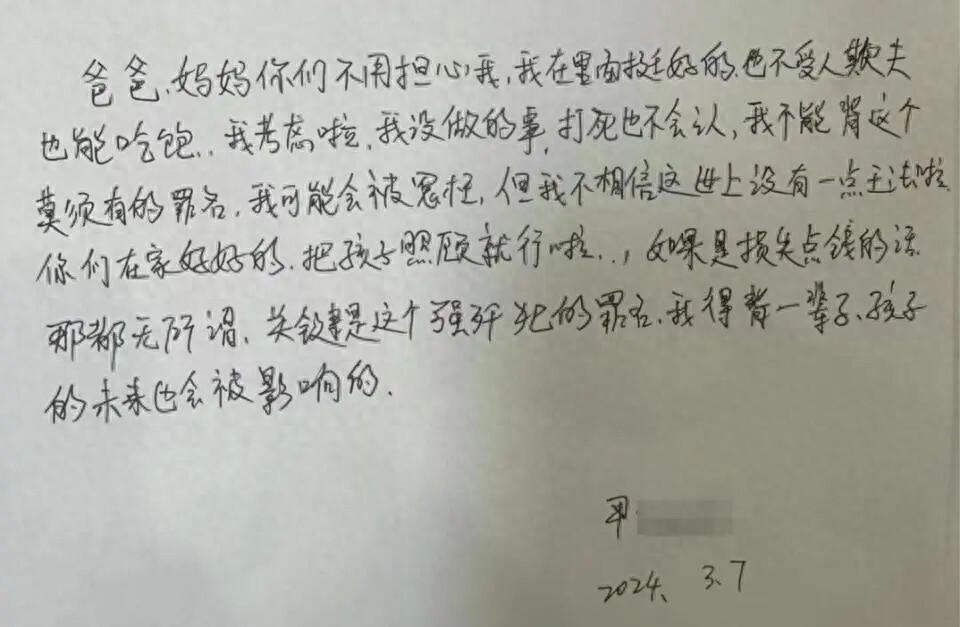 爸爸、妈妈你们不用担心我，我在里面挺好的、也不受人欺夫
也能吃饱、、我考虑啦，我没做的事，打死也不会认，我不能背这个
莫须有的罪名，我可能会被冤枉，但我不相信这世上没有一点王法啦
你们在家好好的、把孩子照顾就行啦、、，如果是损失点钱的话
那都无所谓，关键是这个强奸犯的罪名、我得背一辈子、孩子
的未来也会被影响的、
甲
2024、3、7